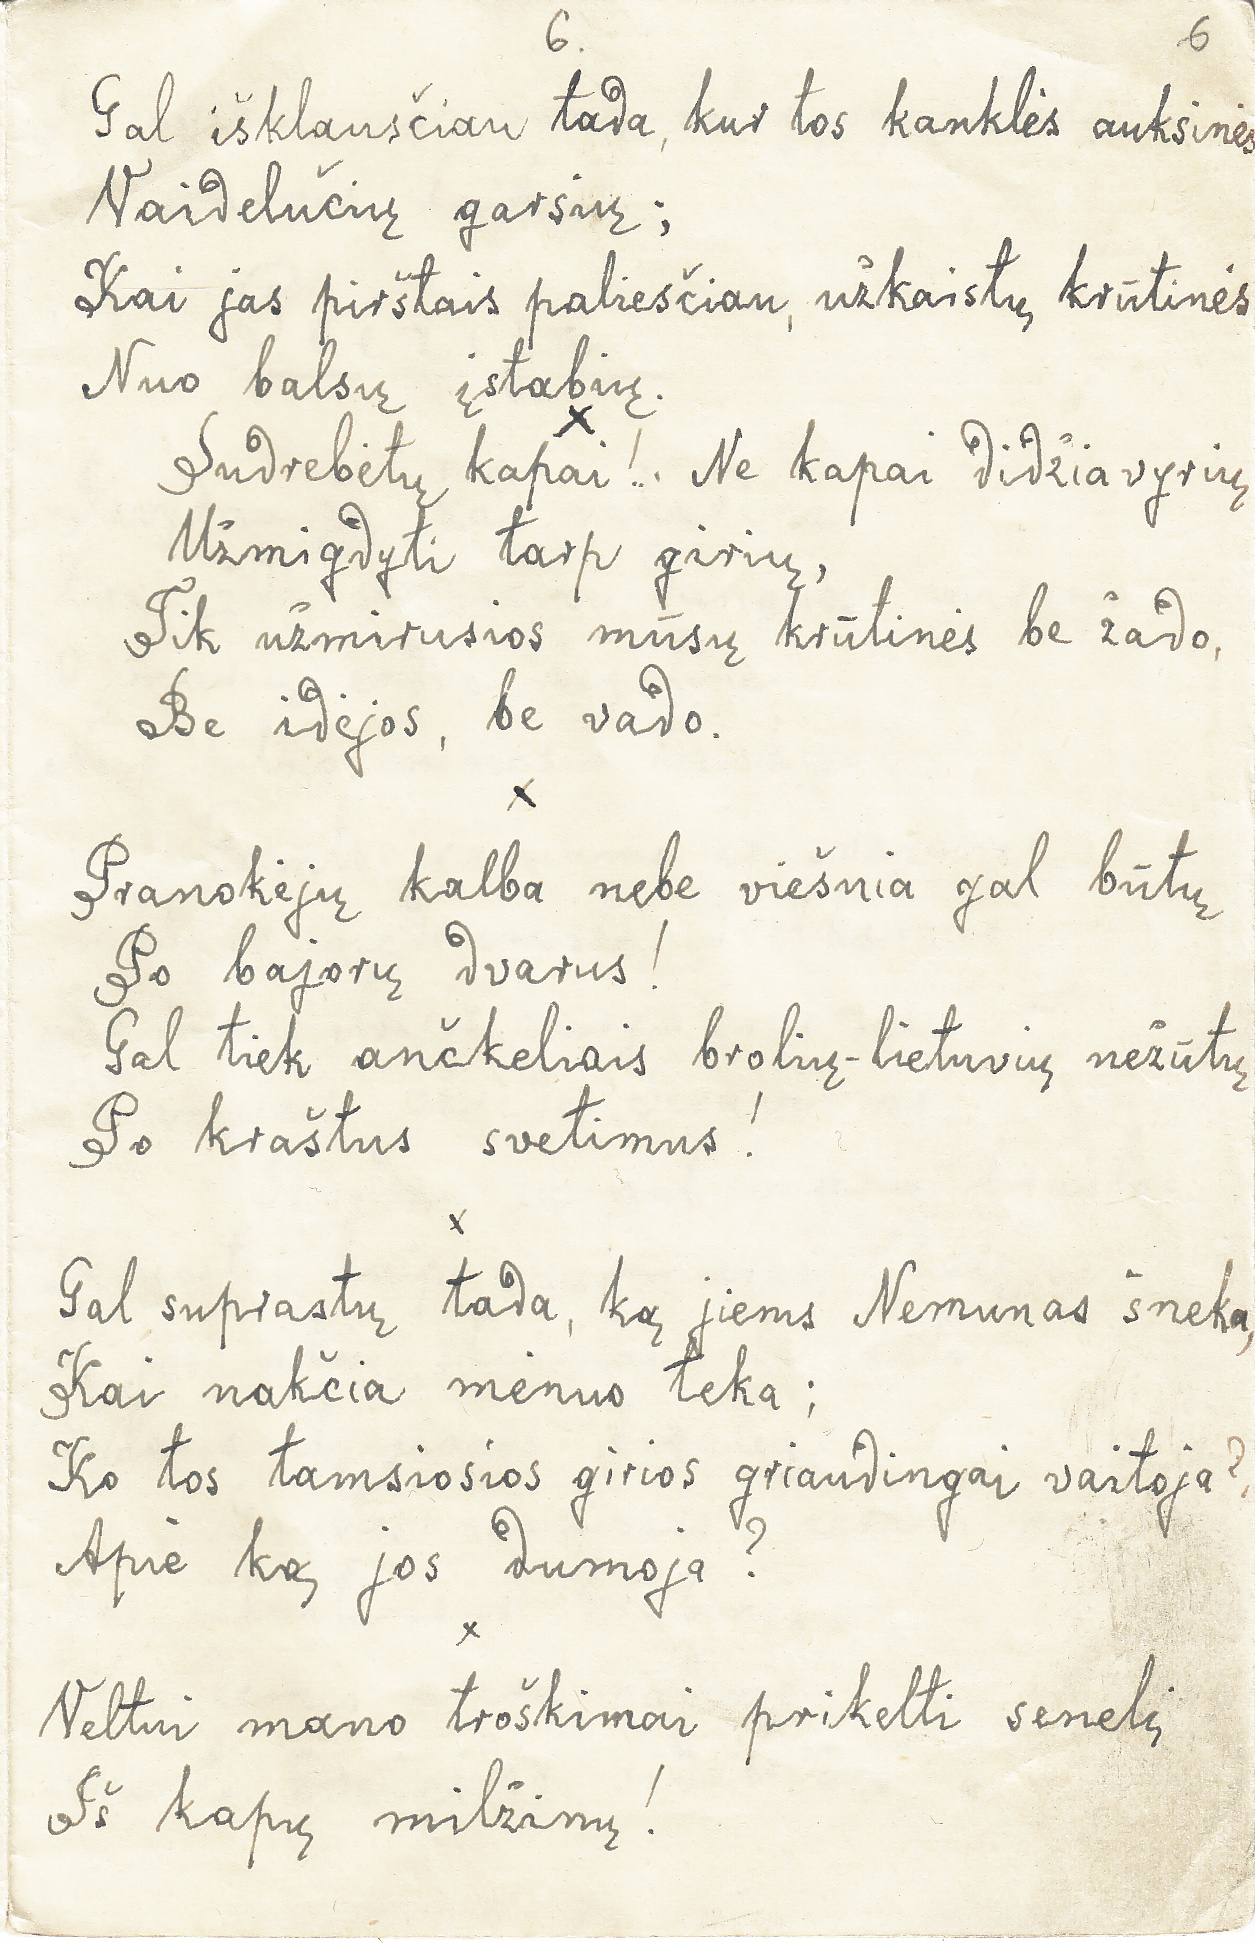 6. 6
Gal išklausčiau tada, kur tos kanklės auksinės
Vaidelučių garsių;
Kai jas pirštais paliesčiau, užkaistų krūtinės
Nuo balsų įstabių.
x
Sudrebėtų kapai!.. Ne kapai didžiavyrių
Užmigdyti tarp girių,
Tik užmirusios mūsų krūtinės be žado,
Be idėjos, be vado.
x
Pranokėjų kalba nebe viešnia gal būtų
Po bajorų dvarus!
Gal tiek ančkeliais brolių-lietuvių nežūtų
Po kraštus svetimus!
x
Gal suprastų tada, ką jiems Nemunas šneka,
Kai nakčia mėnuo teka;
Ko tos tamsiosios girios griaudingai vaitoja?
Apie ką jos dumoja?
x
Veltui mano troškimai prikelti senelį
Iš kapų milžinų!